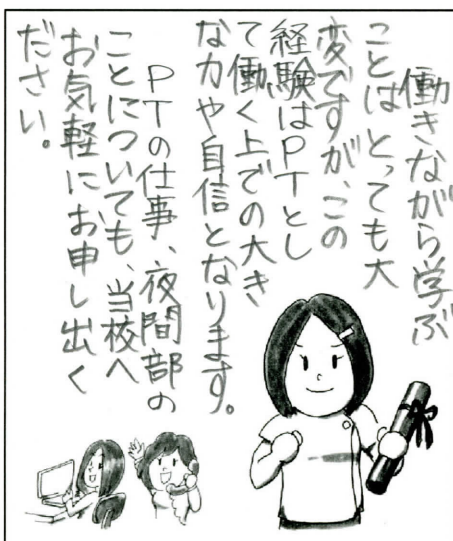 働きながら学ぶ
ことは とっても大
変ですが、この
経験はPTとし
て働く上での大き
な力や自信となります。
PTの仕事、夜間部の
ことについても、当校へ
お気軽にお申し出く
ださい。